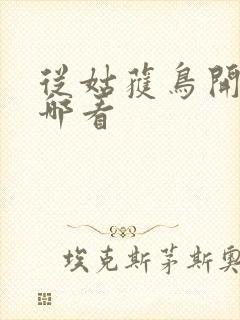 従姑獲鳥開
哪看
埃克斯茅斯奧